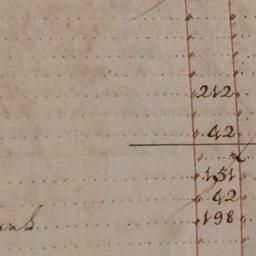 212
42
151
42
198